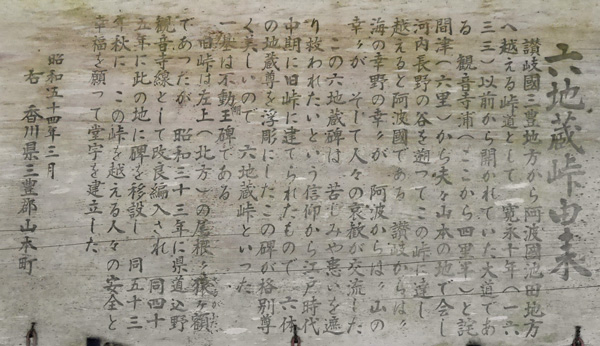 六地蔵峠由来
讃岐國三豊地方から阿波國池田地方
へ越える峠道として 寛永十年(一六
三三)以前から開かれていた大道であ
る 観音寺浦(ここから四里半)と詫
間津(六里)から夫々山本の地で会し
河内長野の谷を遡ってこの峠に達し
越えると阿波國である 讃岐からは〝
海の幸野の幸〟が 阿波からは〝山の
幸〟が そして人々の哀歓が交流した
この六地蔵碑は 苦しみや患いを遁
り救われたいという信仰から江戸時代
中期に旧峠に建てられたもので 六体
の地蔵尊を浮彫にしたこの碑が格別尊
く美しいので 六地蔵峠といった
一基は不動王碑である
旧峠は左上(北方)の尾根〝猿ヶ額〟
であったが 昭和三十三年に県道込野
観音寺線として改良編入され 同四十
五年に此の地に碑を移設し 同五十三
年秋に この峠を越える人々の安全と
幸福を願って堂宇を建立した
昭和五十四年三月
右 香川県三豊郡山本町